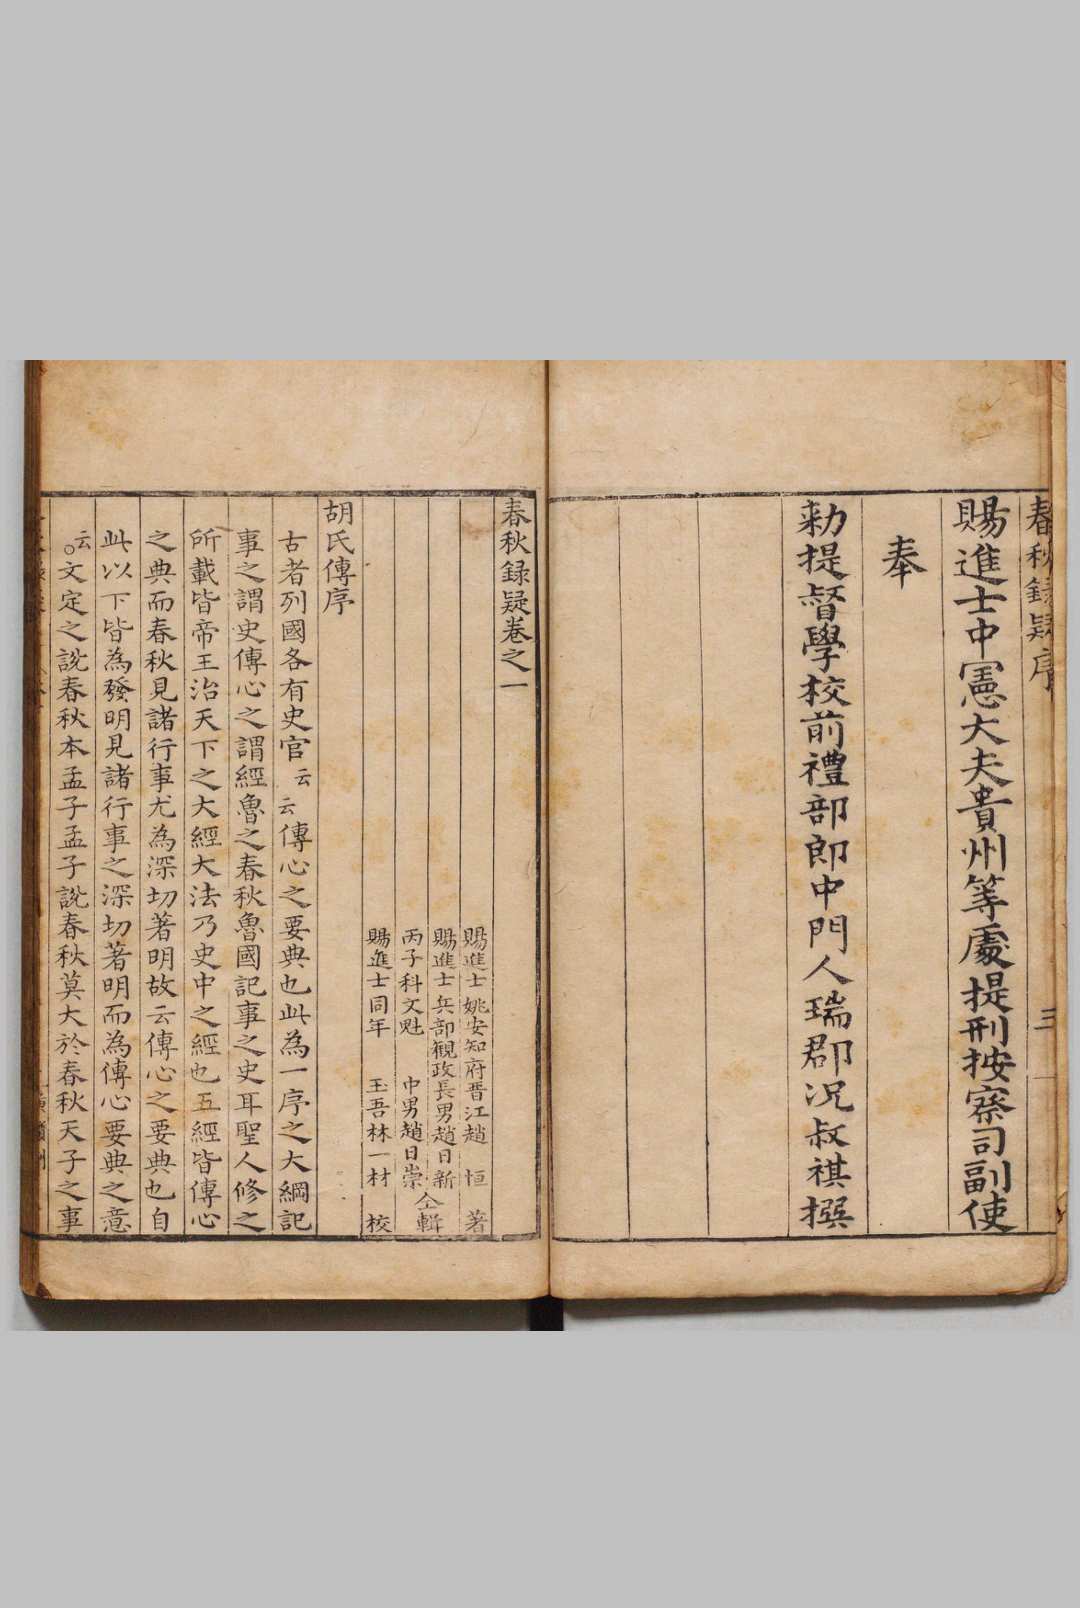 春秋録疑序
三
賜進士中憲大夫貴州等處提刑按察司副使
奉
勑提督學校前禮部郎中門人瑞郡况叔祺撰
春秋録疑卷之一
賜進士姚安知府晋江趙恒著
賜進士兵部観政長男趙日新
丙子科文魁中男趙日崇
仝輯
賜進士同年玉吾林一材校
胡氏傳序
古者列國各有史官云云傳心之要典也此為一序之大綱記
事之謂史傳心之謂經魯之春秋魯國記事之史耳聖人修之
所載皆帝王治天下之大經大法乃史中之經也五經皆傳心
之典而春秋見諸行事尤為深切著明故云傳心之要典也自
此以下皆為發明見諸行事之深切著明而為傳心要典之意
云○文定之說春秋本孟子孟子說春秋莫大於春秋天子之事